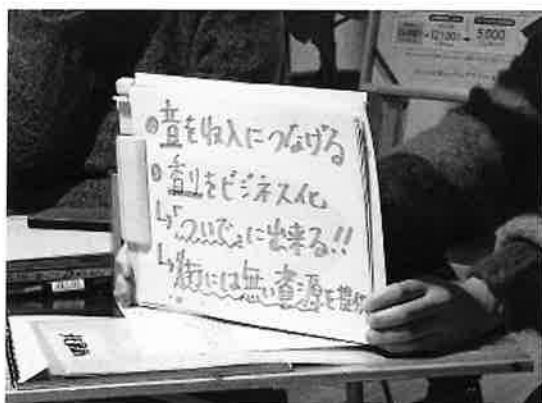 音を収入につなげる
香りをビジネス化
↳「ついで」に出来る!!
↳街には無い資源を提供
5,000